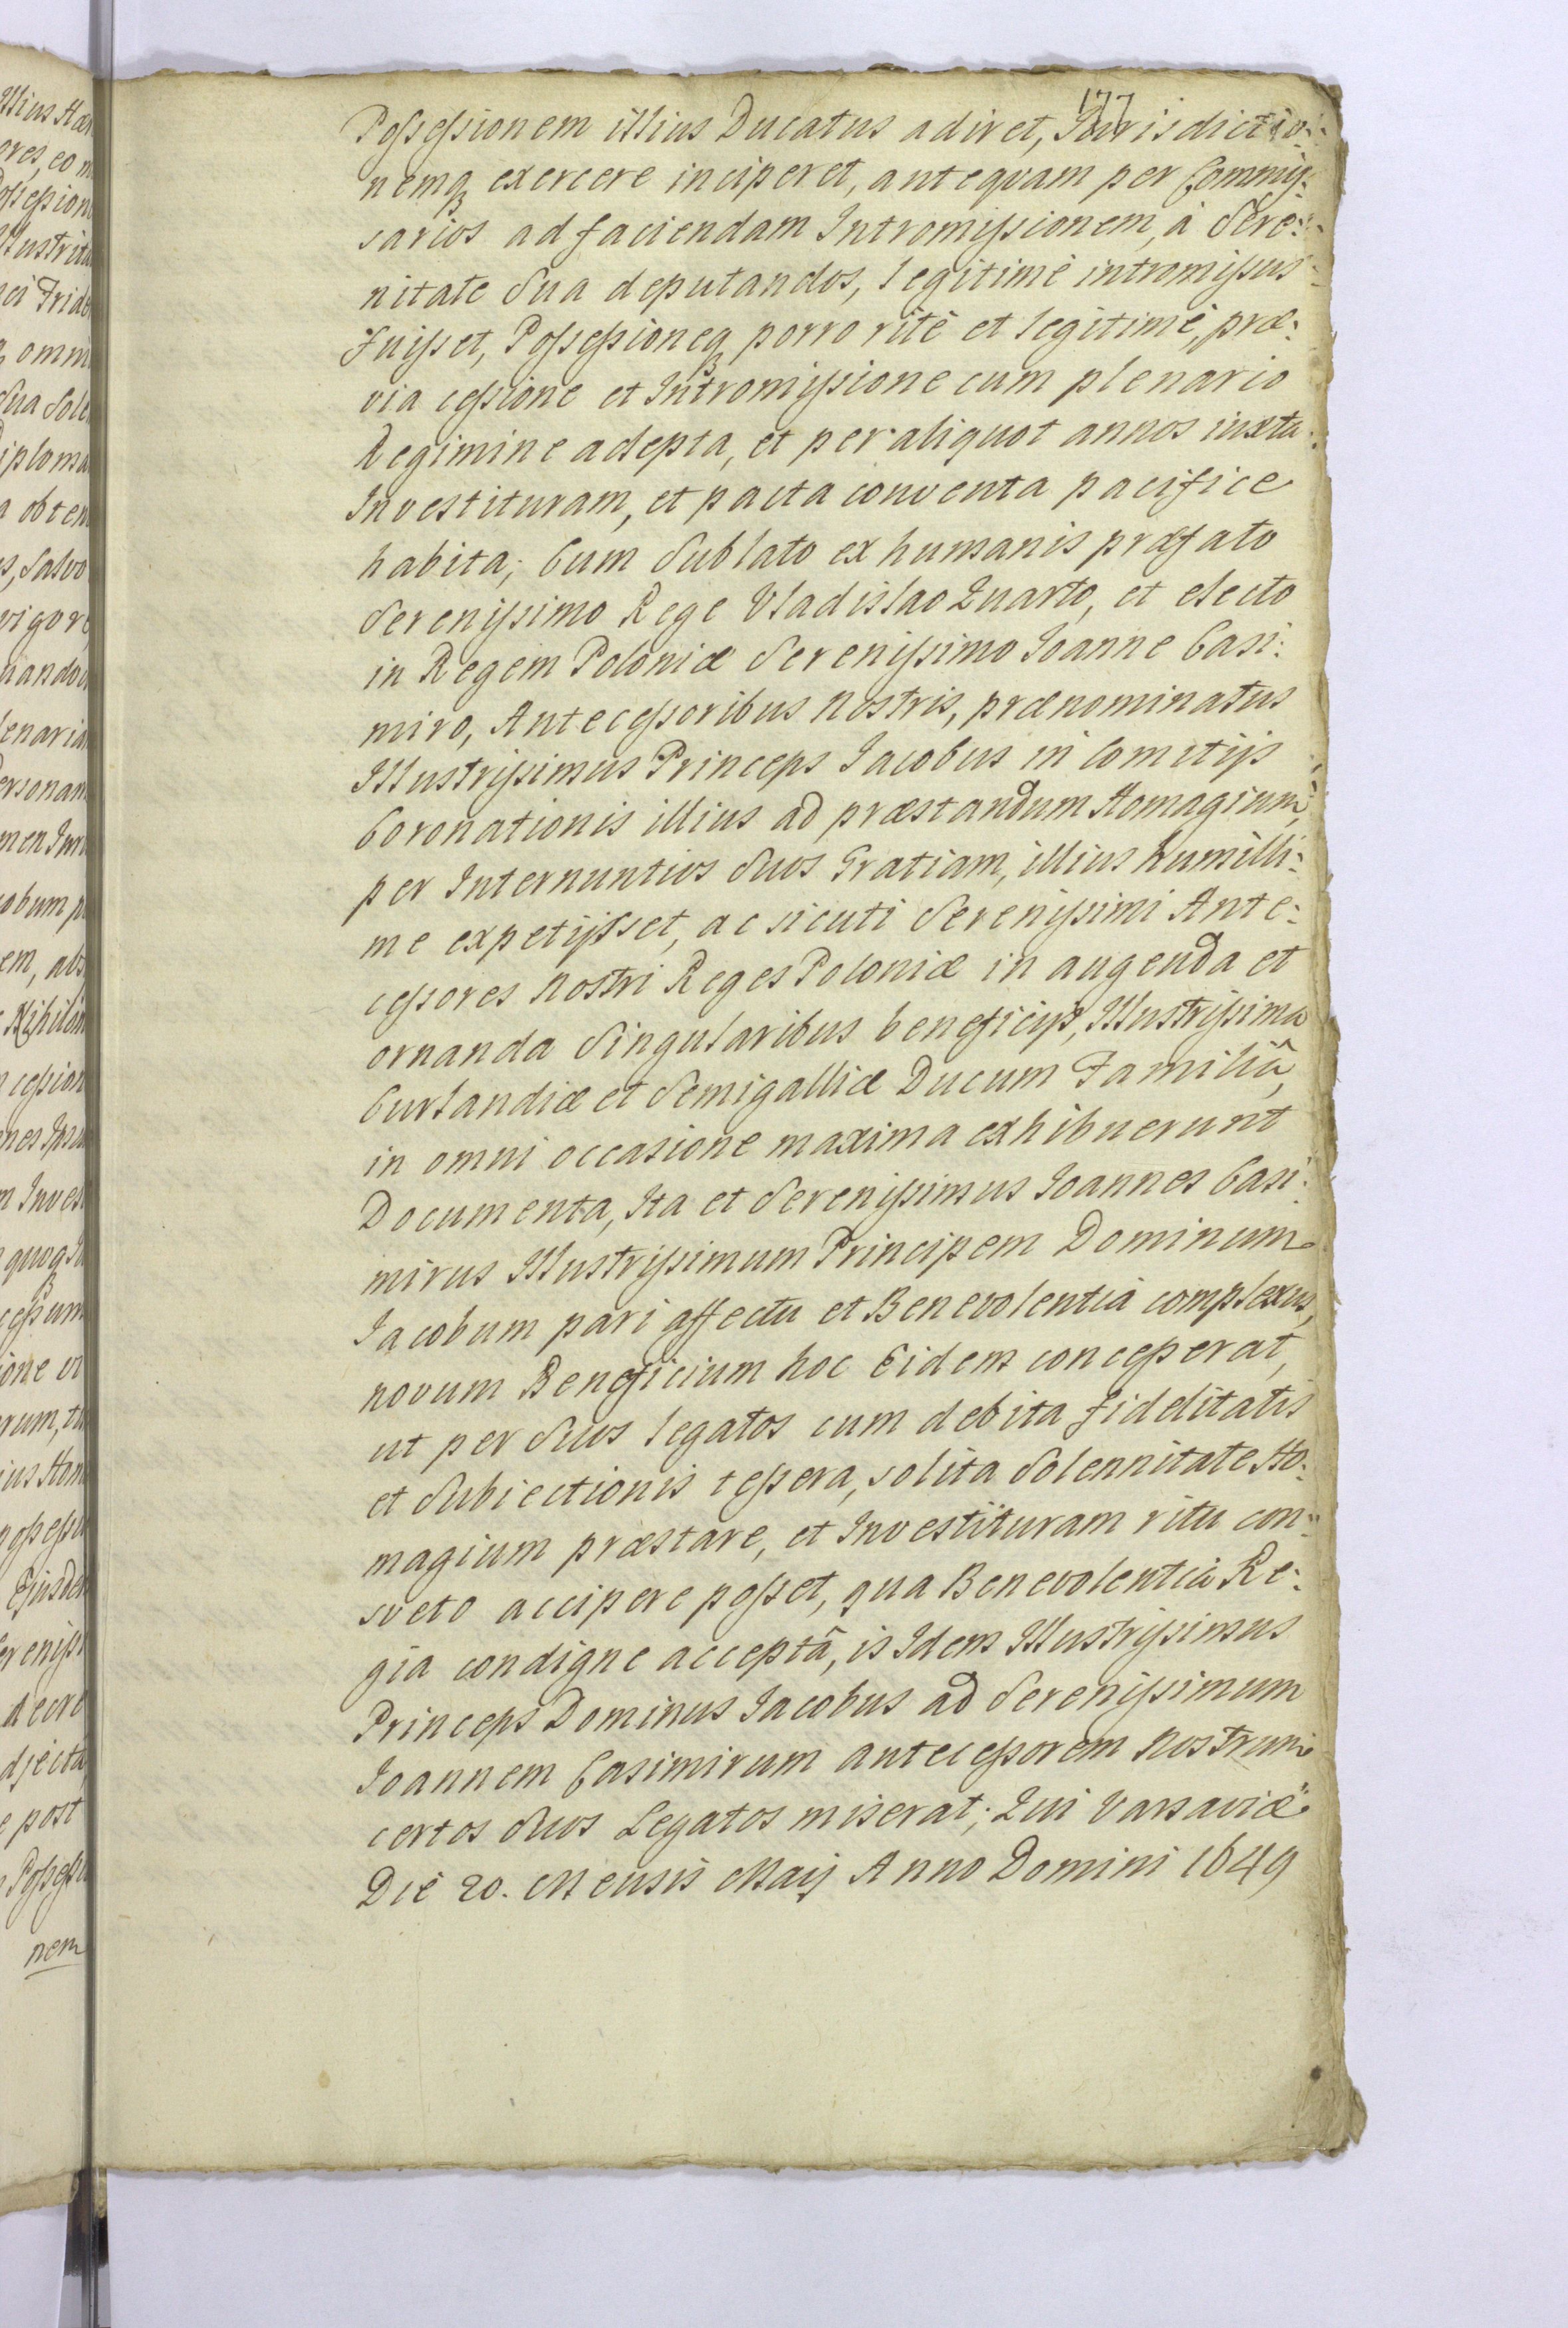 177
Possessionem illius Ducatus adiret, Jurisdictio:
nemq3 exercere inciperet, antequam per Commis:
sarios ad faciendam Intromissionem, à Sere:
nitate Sua deputandos, legitimè intromissus
fuisset, Possessioneq3 porro ritè et legitimè, præ:
via cessione et Intromissione cum plenario
Regimine adepta, et per aliquot annos iuxta
Investituram, et pacta conventa pacifice
habita; Cum Sublato ex humanis præfato
Serenissimo Rege Vladislao Quarto, et electo
in Regem Poloniæ Serenissimo Ioanne Casi:
miro, Antecessoribus Nostris, prænominatus
Illustrissimus Princeps Iacobus in Comitijs
Coronationis illius ad præstandum Homagium,
per Internuntios Suos Gratiam, illius humilli:
me expetijsset, ac sicuti Serenissimi Ante:
cessores Nostri Reges Poloniæ in augenda et
ornanda Singularibus beneficijs, Illustrissima
Curlandiæ et Semigalliæ Ducum Familiâ,
in omni occasione maxima exhibuerunt
Documenta, Ita et Serenissimus Ioannes Casi:
mirus Illustrissimum Principem Dominum
Iacobum pari affectu et Benevolentiâ complexus,
novum Beneficium hoc Eidem concesserat,
ut per Suos legatos cum debita fidelitatis
et Subiectionis tessera, solita Solennitate Ho:
magium præstare, et Investituram ritu con:
sveto accipere posset, qua Benevolentiâ Re:
gia condigne acceptâ, is Idem Illustrissimus
Princeps Dominus Iacobus ad Serenissimum
Ioannem Casimirum antecessorem Nostrum
certos Suos Legatos miserat; Qui Varsaviæ
Diê 20. Mensis Maij Anno Domini 1649